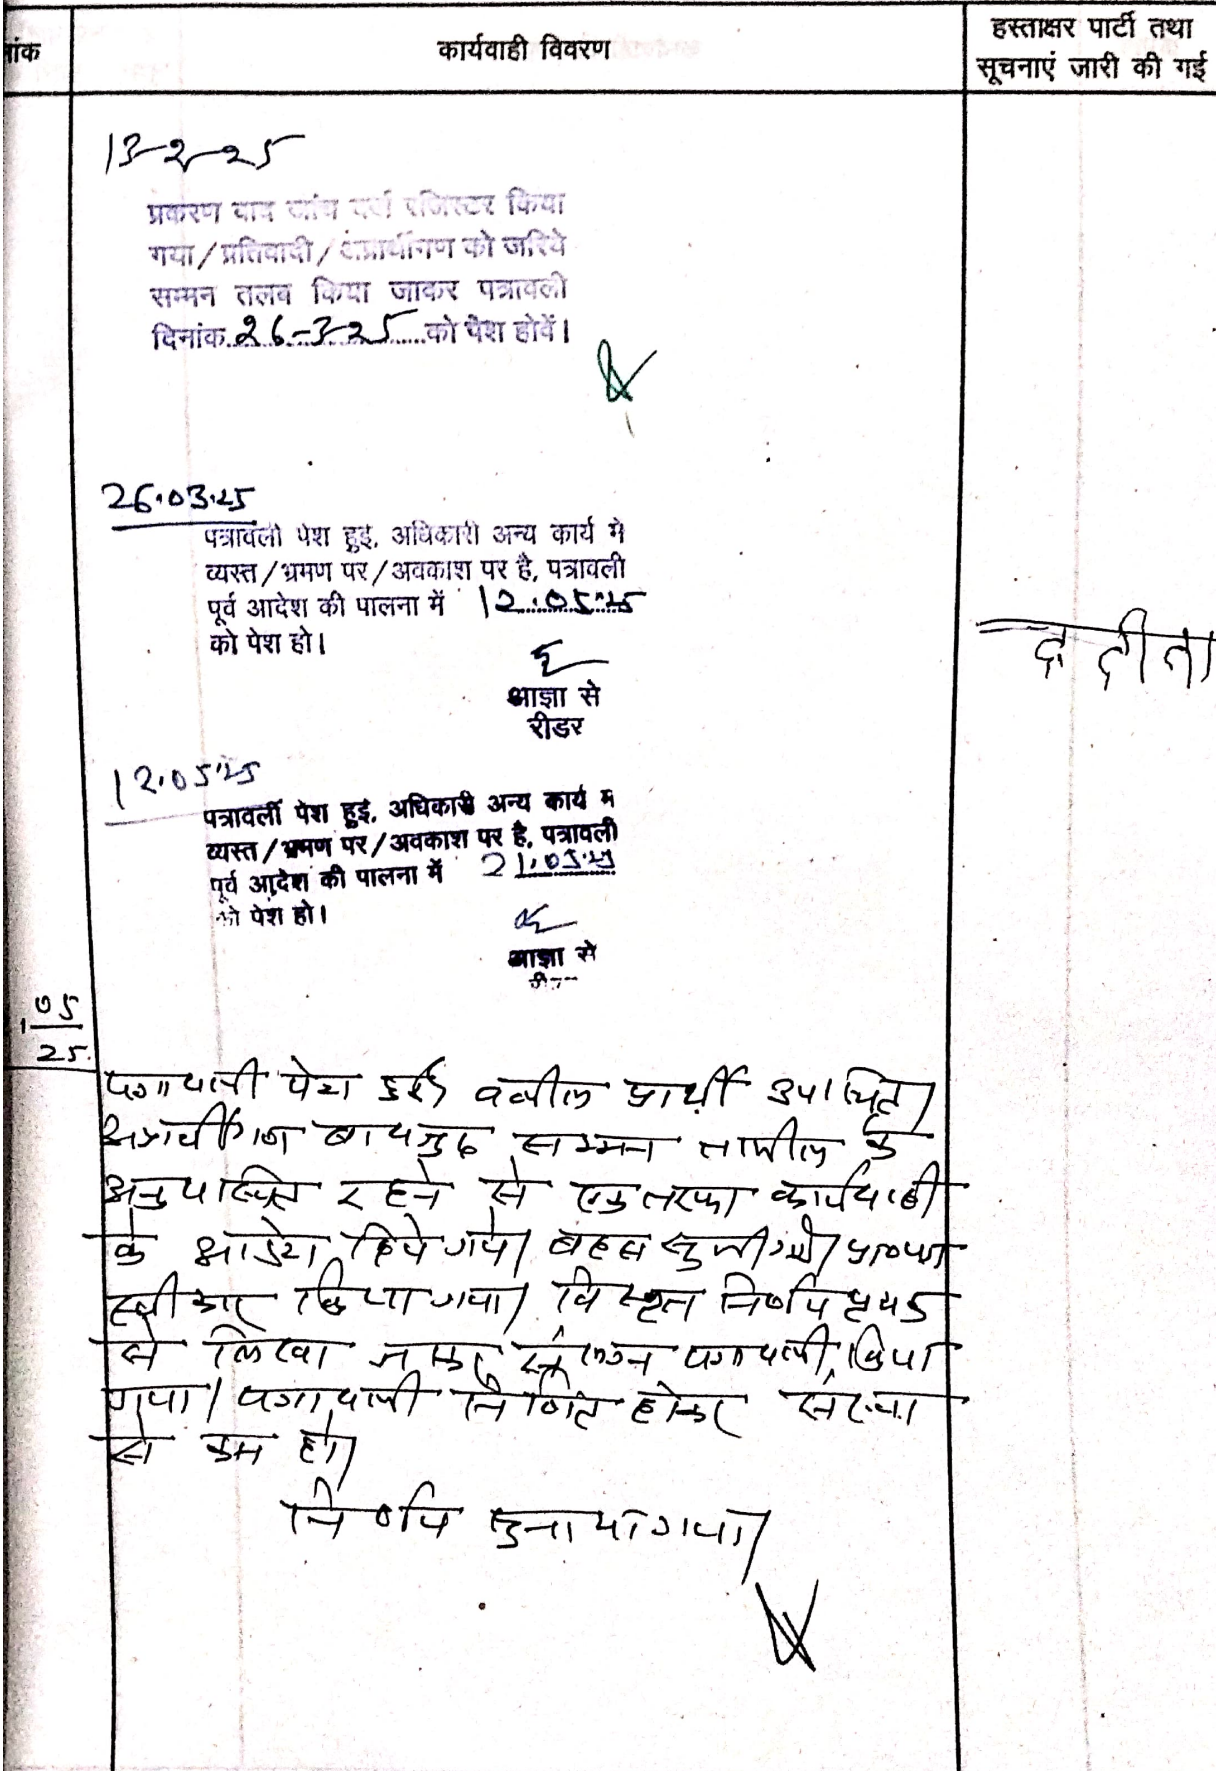 नांक
कार्यवाही विवरण
हस्ताक्षर पार्टी तथा
सूचनाएं जारी की गई
13-2-25
प्रकरण वाद जांच दर्ज रजिस्टर किया
गया/प्रतिवादी/अप्रार्थीगण को जरिये
सम्मन तलब किया जाकर पत्रावली
दिनांक 26-3-25 को पेश होवें।
26.03.25
पत्रावली पेश हुई, अधिकारी अन्य कार्य में
व्यस्त/भ्रमण पर/अवकाश पर है, पत्रावली
पूर्व आदेश की पालना में 12.05.25
को पेश हो।
आज्ञा से
रीडर
12.05.25
पत्रावली पेश हुई, अधिकारी अन्य कार्य में
व्यस्त/भ्रमण पर/अवकाश पर है, पत्रावली
पूर्व आदेश की पालना में 21.05.25
को पेश हो।
आज्ञा से
05
25
पत्रावली पेश हुई। वकील प्रार्थी उपस्थित।
अप्रार्थीगण बावजूद सम्मन तामील के
अनुपस्थित रहने से एकतरफा कार्यवाही
के आदेश दिये गये। बहस सुनी गयी। प्रा०पत्र
स्वीकार किया गया। विस्तृत निर्णय पृथक
से लिखा जाकर संलग्न पत्रावली किया
गया। पत्रावली निर्णित होकर संख्या
से कम हो।
निर्णय सुनाया गया।